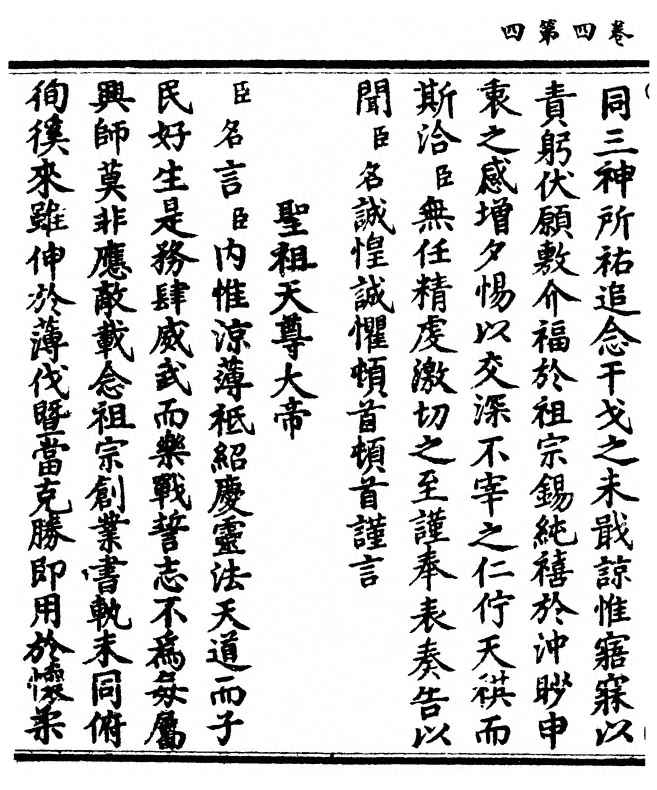 卷四第四
同三神所祐追念干戈之未戢諒惟寤寐以
責躬伏願敷介福於祖宗錫純禧於沖眇申
衷之感增夕惕以交深不宰之仁佇天祺而
斯洽臣無任精虔激切之至謹奉表奏告以
聞臣名誠惶誠懼頓首頓首謹言
聖祖天尊大帝
臣名言臣内惟涼薄祗紹慶靈法天道而子
民好生是務肆威武而樂戰誓志不為每屬
興師莫非應敵載念祖宗創業書軌未同俯
徇徯來雖伸於薄伐曁當克勝即用於懷柔